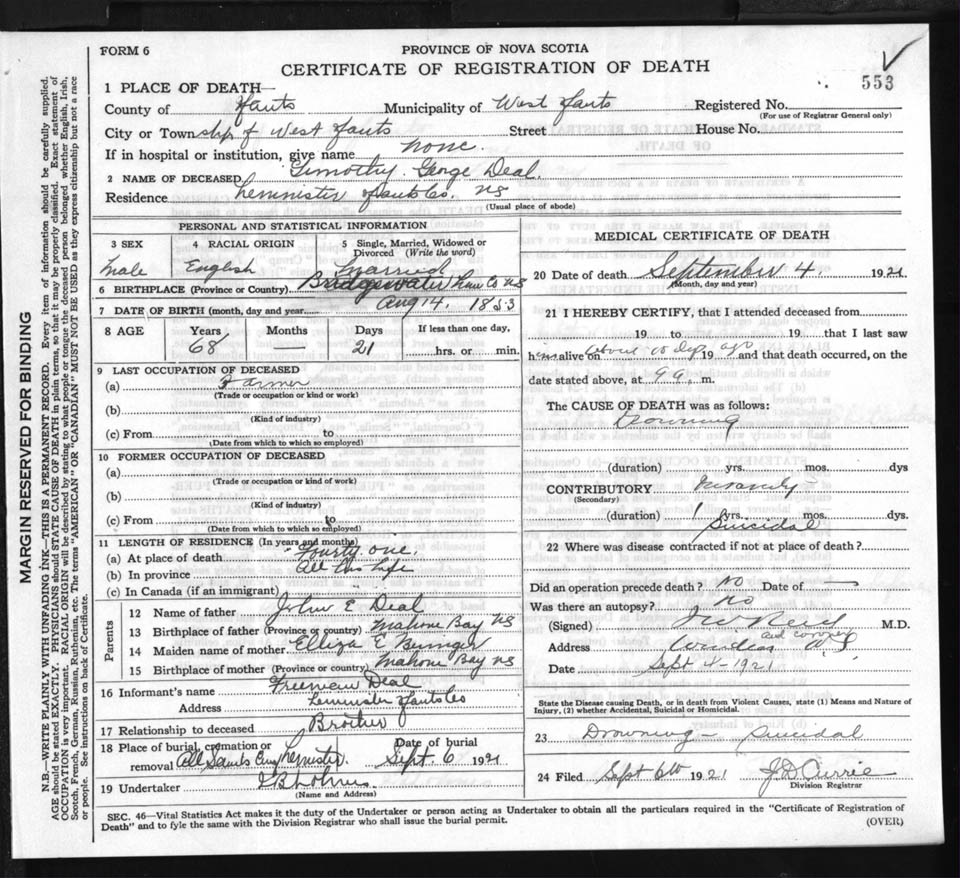 FORM 6
PROVINCE OF NOVA SCOTIA
CERTIFICATE OF REGISTRATION OF DEATH
553
1 PLACE OF DEATH—
County of Hants Municipality of West Hants Registered No.
(For use of Registrar General only)
City or Township of West Hants Street House No.
If in hospital or institution, give name none.
2 NAME OF DECEASED Timothy George Deal.
Residence Leminister Hants Co. NS
(Usual place of abode)
PERSONAL AND STATISTICAL INFORMATION
3 SEX 4 RACIAL ORIGIN 5 Single, Married, Widowed or Divorced (Write the word)
Male English Married
6 BIRTHPLACE (Province or Country) Bridgewater Co NS
7 DATE OF BIRTH (month, day and year) Aug 14, 1853
8 AGE Years Months Days If less than one day,
68 — 21 hrs. or min.
9 LAST OCCUPATION OF DECEASED
(a) Farmer
(Trade or occupation or kind or work)
(b)
(Kind of industry)
(c) From to
(Date from which to which so employed)
10 FORMER OCCUPATION OF DECEASED
(a)
(Trade or occupation or kind of work)
(b)
(Kind of industry)
(c) From to
(Date from which to which so employed)
11 LENGTH OF RESIDENCE (In years and months)
(a) At place of death Fourty one.
(b) In province All his life
(c) In Canada (if an immigrant)
Parents
12 Name of father John E Deal
13 Birthplace of father (Province or country) Mahone Bay NS
14 Maiden name of mother Elliza E
15 Birthplace of mother (Province or country) Mahone Bay NS
16 Informant's name Freeman Deal
Address Leminster Hants Co
17 Relationship to deceased Brother
18 Place of burial, cremation or removal All Saints Leminster. Date of burial Sept. 6 1921
19 Undertaker
(Name and Address)
MEDICAL CERTIFICATE OF DEATH
20 Date of death September 4. 1921
(Month, day and year)
21 I HEREBY CERTIFY, that I attended deceased from
19 to 19 that I last saw
him alive on about 10 Days ago 19 and that death occurred, on the
date stated above, at 9 a. m.
The CAUSE OF DEATH was as follows:
Drowning
(duration) yrs. mos. dys
CONTRIBUTORY Insanity
(Secondary)
(duration) 1 yrs. mos. dys.
Suicidal
22 Where was disease contracted if not at place of death?
Did an operation precede death? No Date of —
Was there an autopsy? No
(Signed) Reid M.D.
and coroner
Address Windsor N.S
Date Sept 4 - 1921
State the Disease causing Death, or in death from Violent Causes, state (1) Means and Nature of
Injury, (2) whether Accidental, Suicidal or Homicidal.
23 Drowning - Suicidal
24 Filed Sept 6th 1921 J D Currie
Division Registrar
SEC. 46—Vital Statistics Act makes it the duty of the Undertaker or person acting as Undertaker to obtain all the particulars required in the “Certificate of Registration of
Death” and to fyle the same with the Division Registrar who shall issue the burial permit.
(OVER)
MARGIN RESERVED FOR BINDING
N.B.—WRITE PLAINLY WITH UNFADING INK—THIS IS A PERMANENT RECORD. Every item of information should be carefully supplied.
AGE should be stated EXACTLY. PHYSICIANS should STATE CAUSE OF DEATH in plain terms, so that it may be properly classified. Exact statement of
OCCUPATION is very important. RACIAL ORIGIN will be described by stating to what people or tongue the deceased person belonged whether English, Irish,
Scotch, French, German, Russian, Ruthenian, etc. The terms “AMERICAN” or “CANADIAN” MUST NOT BE USED as they express citizenship but not a race
or people. See instructions on back of Certificate.